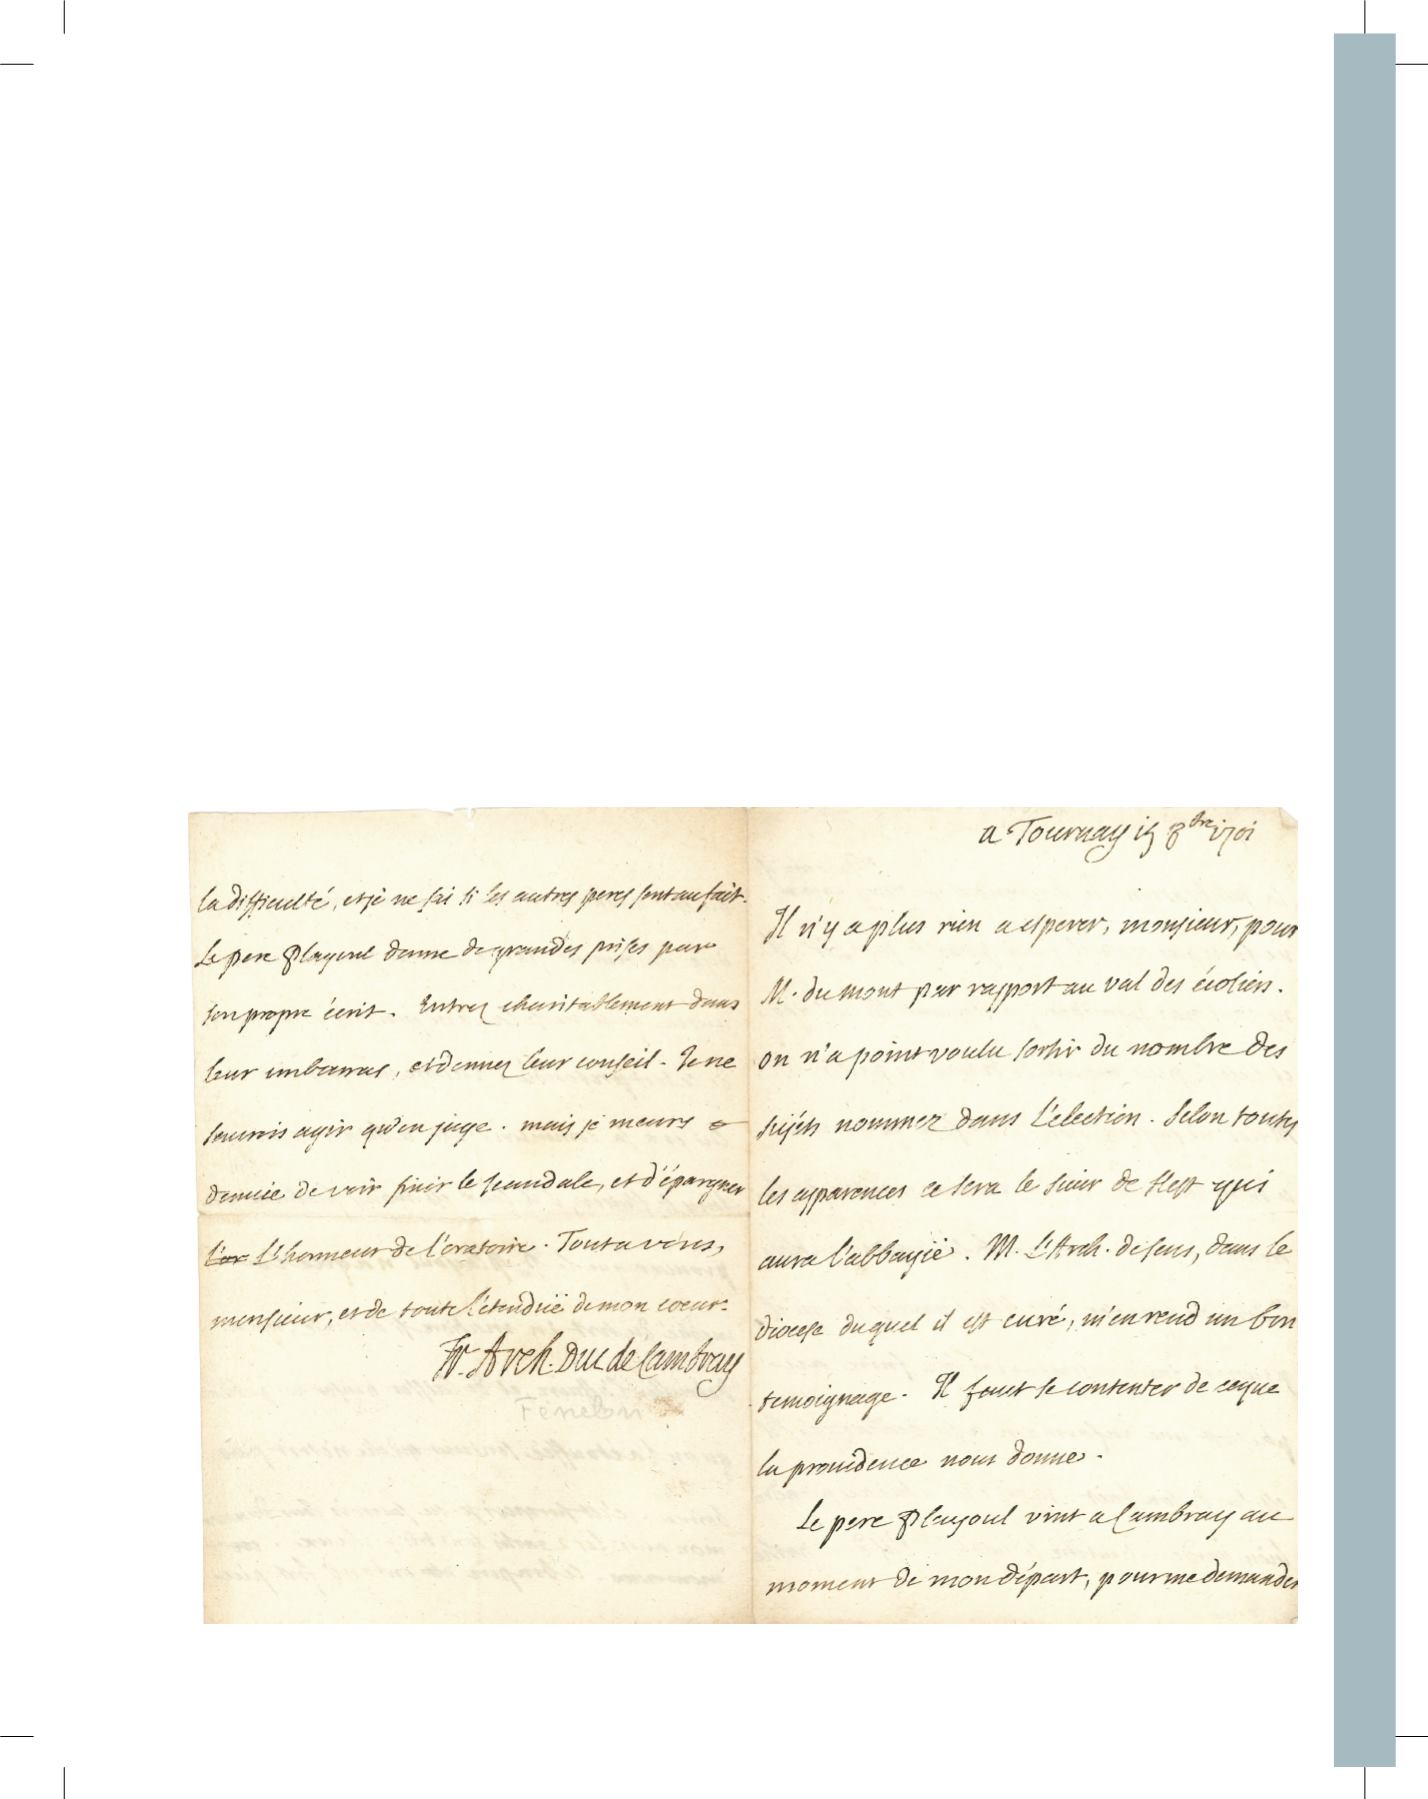 a Tournay 15 8bre 1701
Il n'y a plus rien a esperer, monsieur, pour
M. du mont par rapport au val des écoliers.
on n'a point voulu sortir du nombre des
sujets nommez dans l'élection. Selon toutes
les apparences ce sera le sieur de qui
aura l'abbayië. M. L'Arch. de sens, dans le
diocese duquel il est curé, m'en rend un bon
temoignage. Il faut se contenter de ce que
la providence nous donne.
Le pere Playoul vint a Cambray au
moment de mon départ, pour me demander
la difficulté, et je ne sai si les autres peres sont au fait.
Le pere Playoul donne de grandes prises par
son propre écrit. Entrez charitablement dans
leur embarras, et donnez leur conseil. Je ne
saurois agir qu'en juge. mais je meurs
d'envie de voir finir le scandale, et d'épargner
L'honneur de l'oratoire. Tout a vous,
monsieur, et de toute l'étenduë de mon coeur.
Fr. Arch. Duc de Cambray
Fenelon